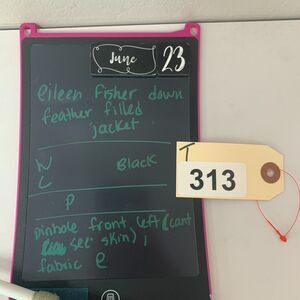 June 23
eileen fisher down
feather filled
jacket
N Black
L
P
pinhole front left (cant
see skin)
fabric e
T
313